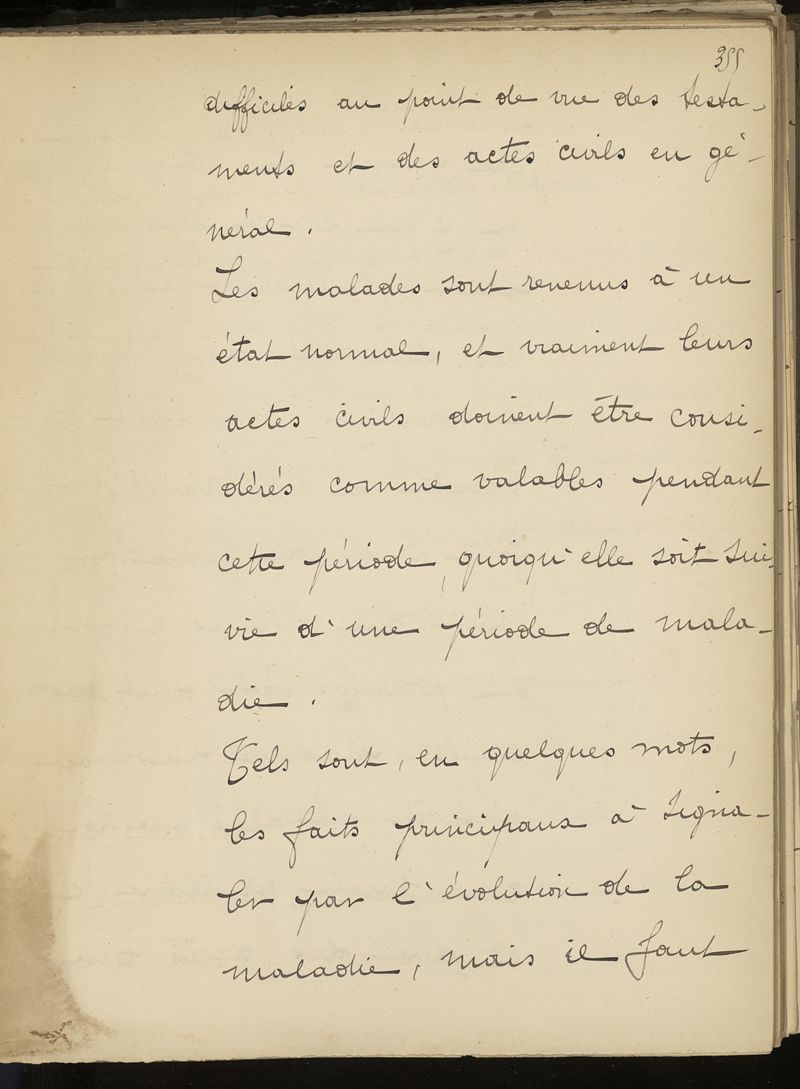 355
difficiles au point de vue des testa-
ments et des actes civils en gé-
néral.
Les malades sont revenus à un
état normal, et vraiment leurs
actes civils doivent être consi-
dérés comme valables pendant
cette période, quoiqu'elle soit sui-
vie d'une période de mala-
die.
Tels sont, en quelques mots,
les faits principaux à signa-
ler par l'évolution de la
maladie, mais il faut